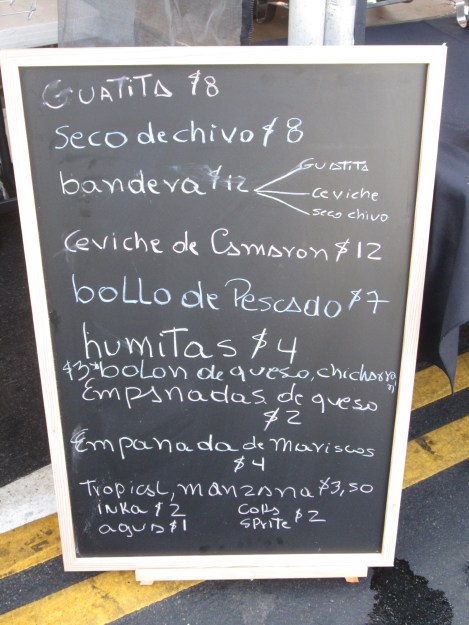 GUATITA $8
Seco de chivo $8
bandera $12
GUATITA
ceviche
seco chivo
Ceviche de Camaron $12
bollo de Pescado $7
humitas $4
$3 bolon de queso, chicharron
Empanadas de queso
$2
Empanada de Mariscos
$4
Tropical, manzana $3,50
INKA $2
agua $1
cola
sprite $2